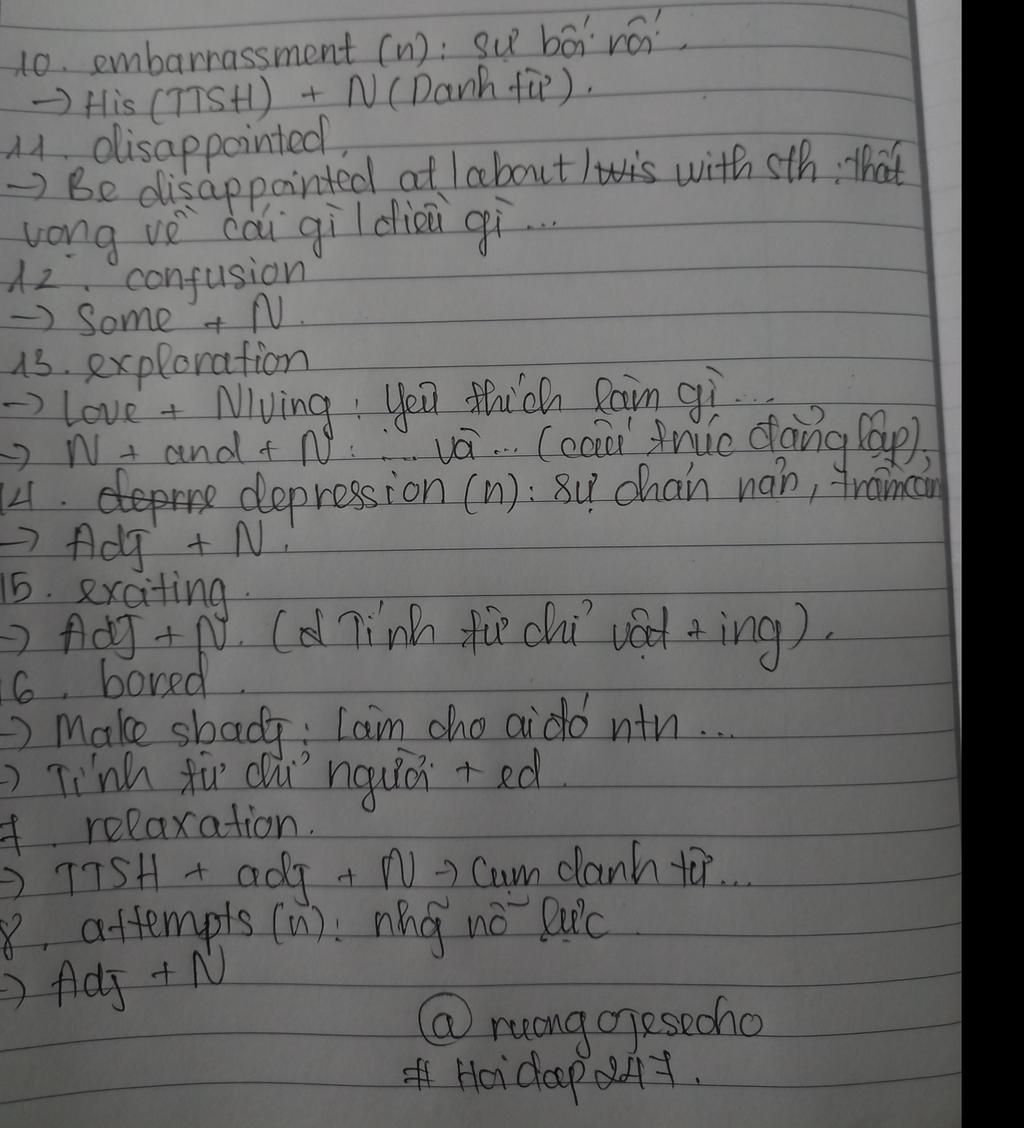 10. embarrassment (n): sự bối rối.
→ His (TTSH) + N (Danh từ).
11. disappointed.
→ Be disappointed at / about / with sth : thất
vọng về cái gì / điều gì ...
12. confusion
→ Some + N.
13. exploration
→ Love + N/Ving : yêu thích làm gì ...
→ N + and + N : ... và ... (cấu trúc đẳng lập).
14. depre depression (n): sự chán nản, trầm cảm
→ Adj + N.
15. exciting.
→ Adj + N. (Tính từ chỉ vật + ing).
16. bored.
→ Make sb adj : làm cho ai đó ntn ...
→ Tính từ chỉ người + ed.
7. relaxation.
→ TTSH + adj + N → Cụm danh từ ...
8. attempts (n): nhg~ nỗ lực
→ Adj + N
# Hoidap247.